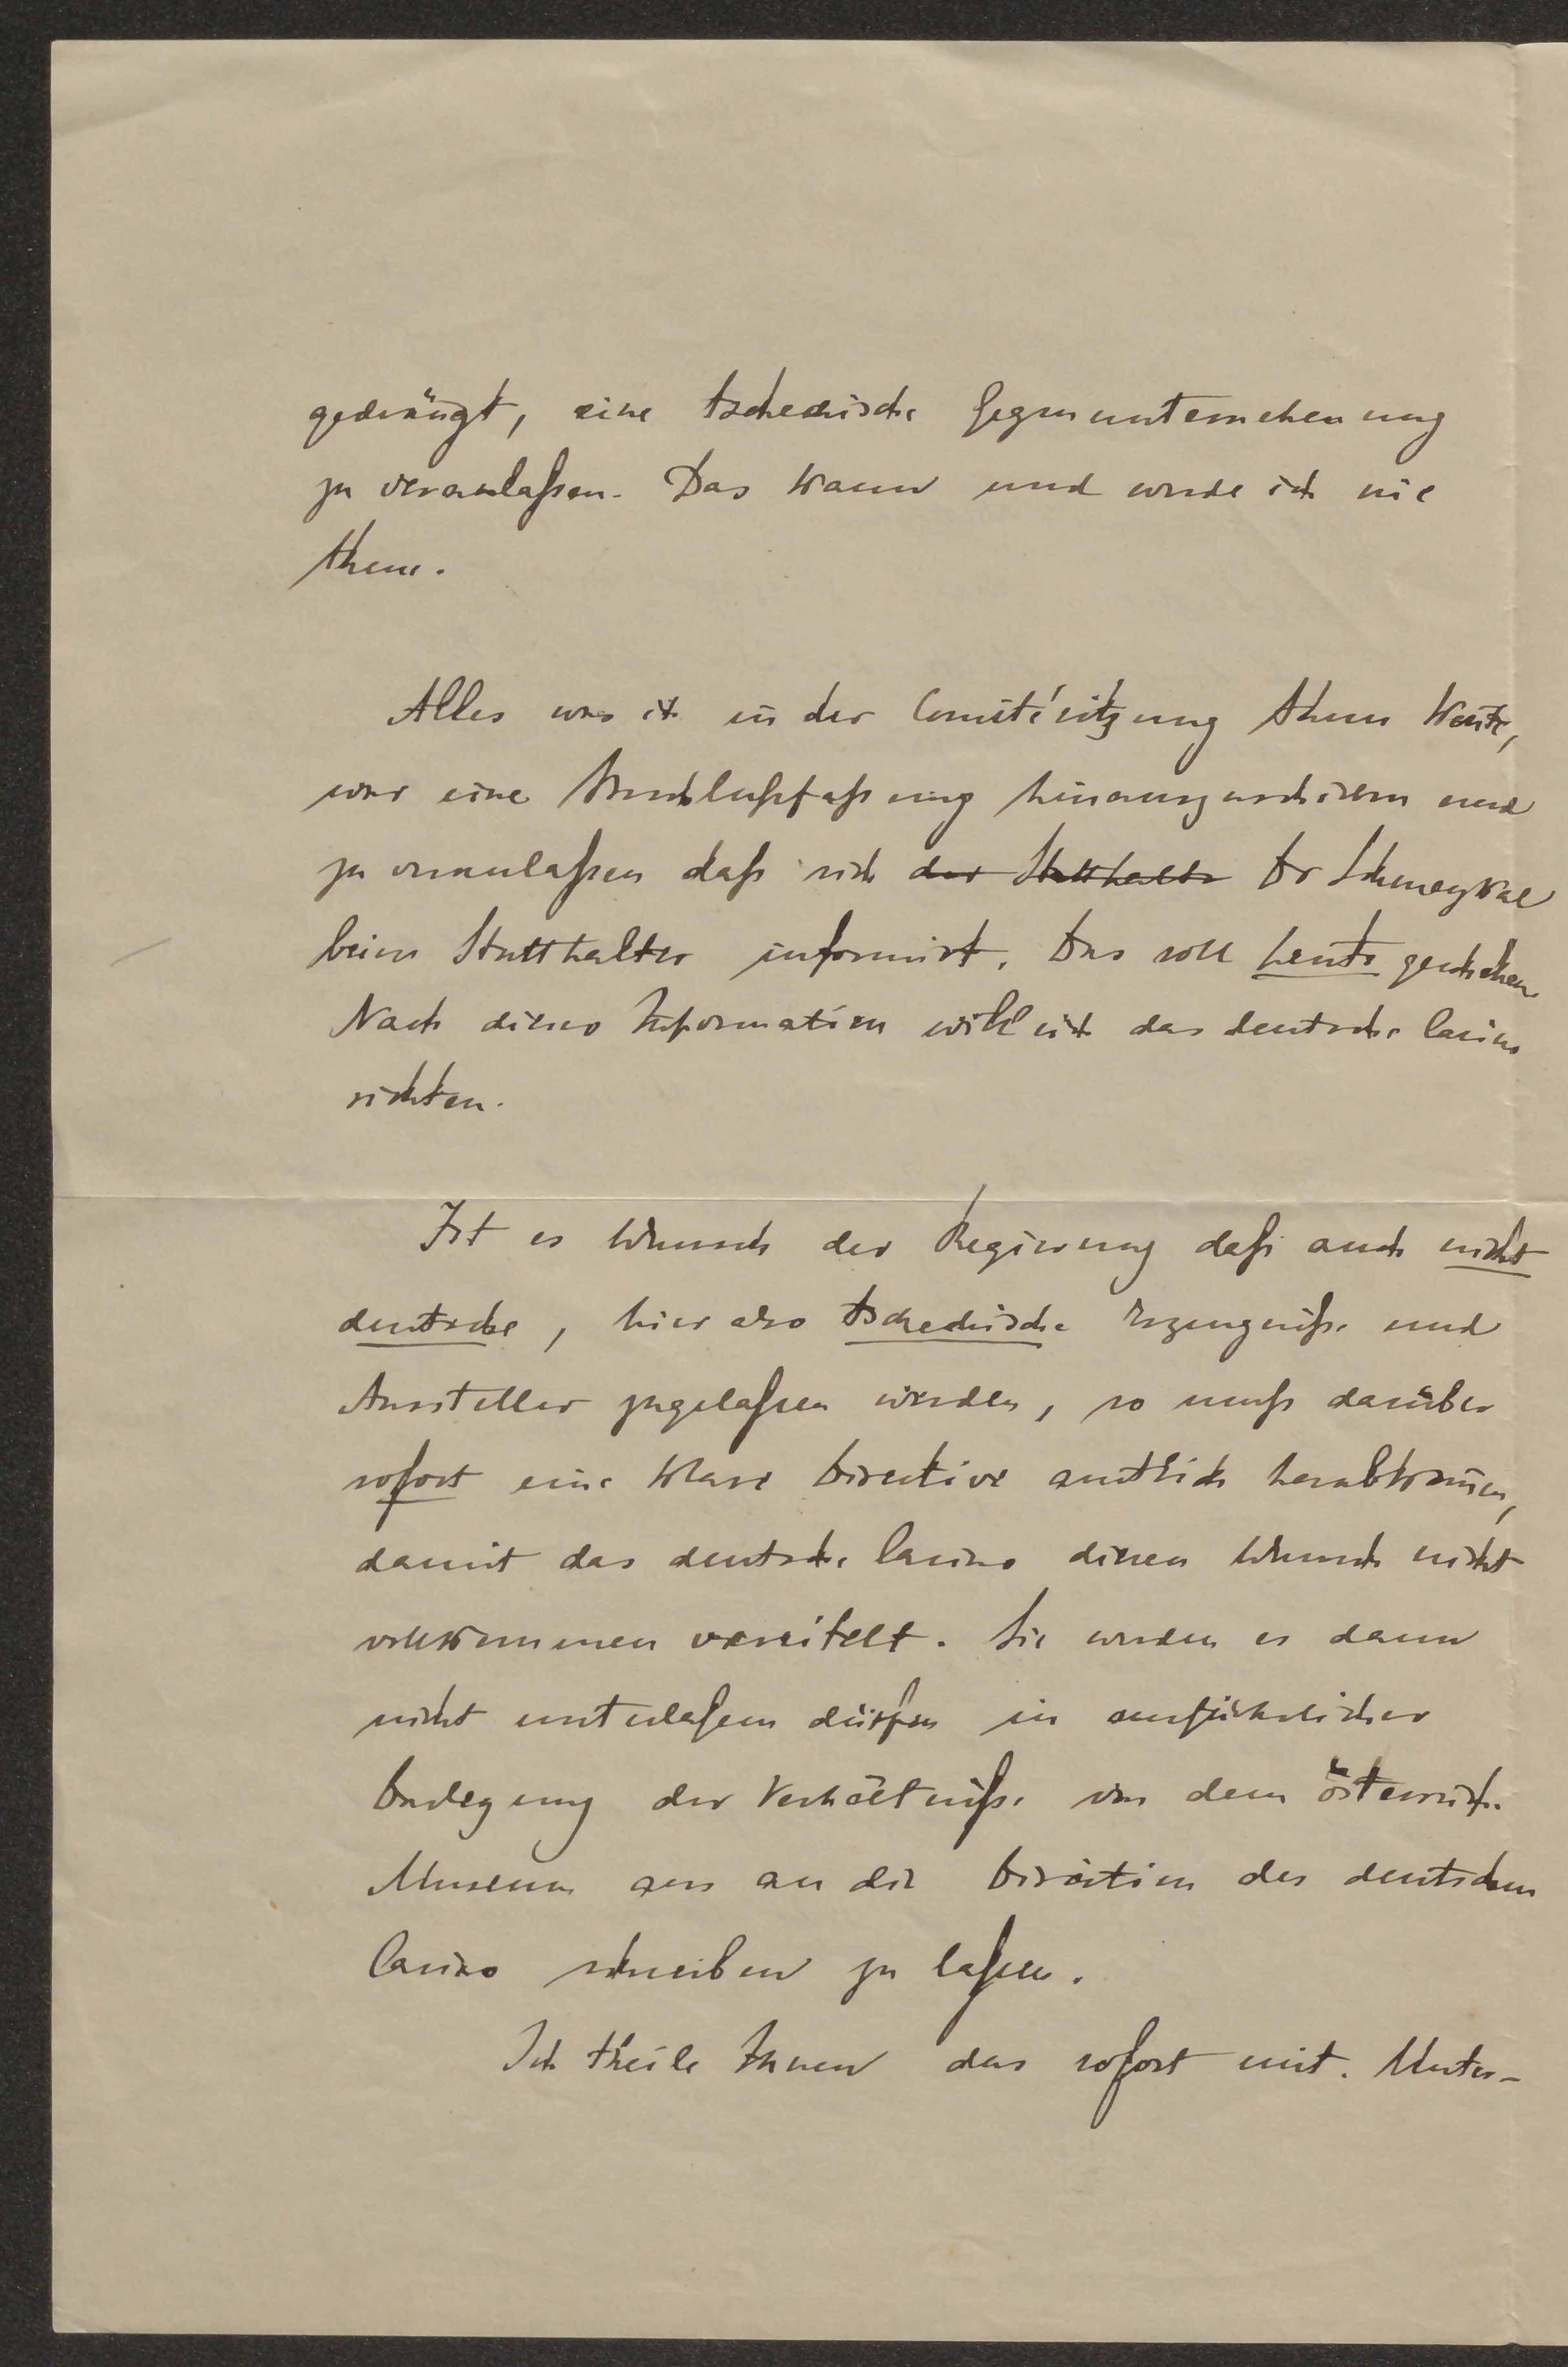 gedrängt, eine tschechische Gegenunternehmung
zu veranlaßen. Das kann und werde ich nie
thun.
Alles was ich in der Comitésitzung thun konnte,
war eine Beschlußfaßung hinauszuschieben und
zu veranlaßen daß sich der Statthalter Dr Schmeykal
beim Statthalter informirt. Das soll heute geschehen.
Nach dieser Information will sich das deutsche Casino
richten.
Ist es Wunsch der Regierung daß auch nicht
deutsche, hier also tschechische Erzeugniße und
Aussteller zugelaßen werden, so muß darüber
sofort eine klare Directive amtlich herabkom̄en,
damit das deutsche Casino diesen Wunsch nicht
vollkommen vereitelt. Sie werden es dann
nicht unterlaßen dürfen in ausführlicher
Darlegung der Verhältniße von dem österreich.
Museum aus an die Direction des deutschen
Casino schreiben zu laßen.
Ich theile Ihnen das sofort mit. Unter-